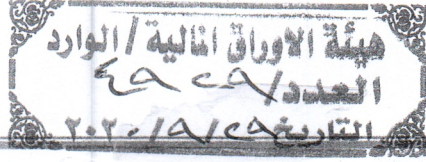 هيئة الاوراق المالية / الوارد
العدد/ ٤٩٢٩
التاريخ ٢٩/٩/٢٠٢٠